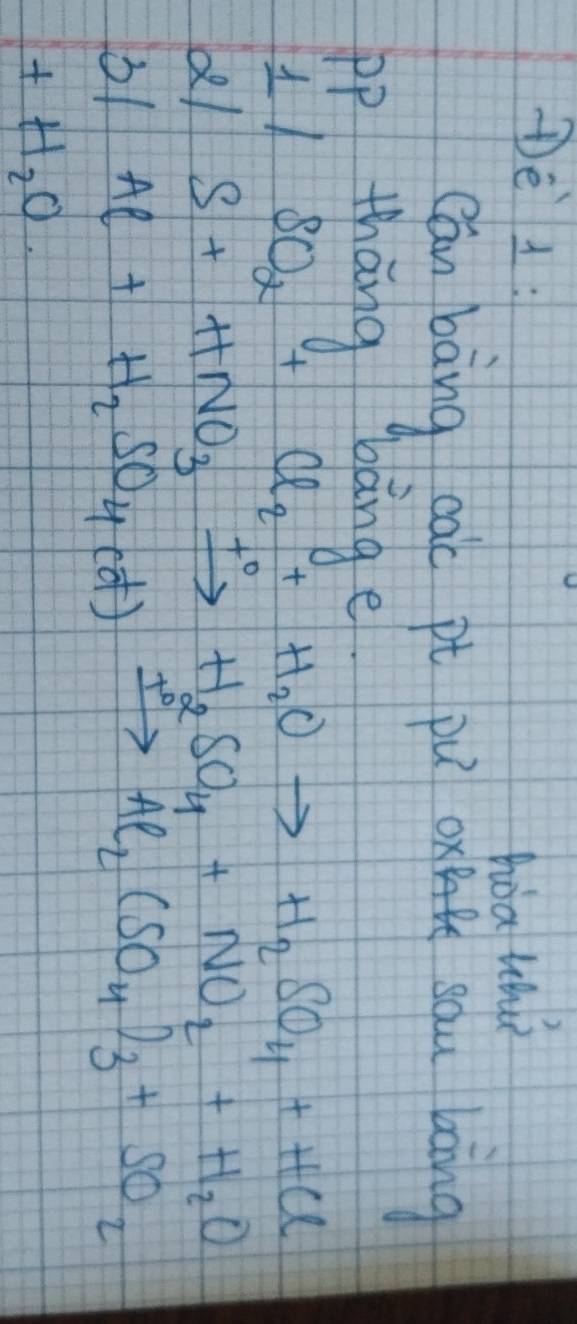 Đề 1:
hóa khử
Cân bằng các pt pứ ox sau bằng
pp thăng bằng e.
1/ SO2 + Cl2 + H2O → H2SO4 + HCl
2/ S + HNO3 →t° H2SO4 + NO2 + H2O
3/ Al + H2SO4(đ) →t° Al2(SO4)3 + SO2
+ H2O.